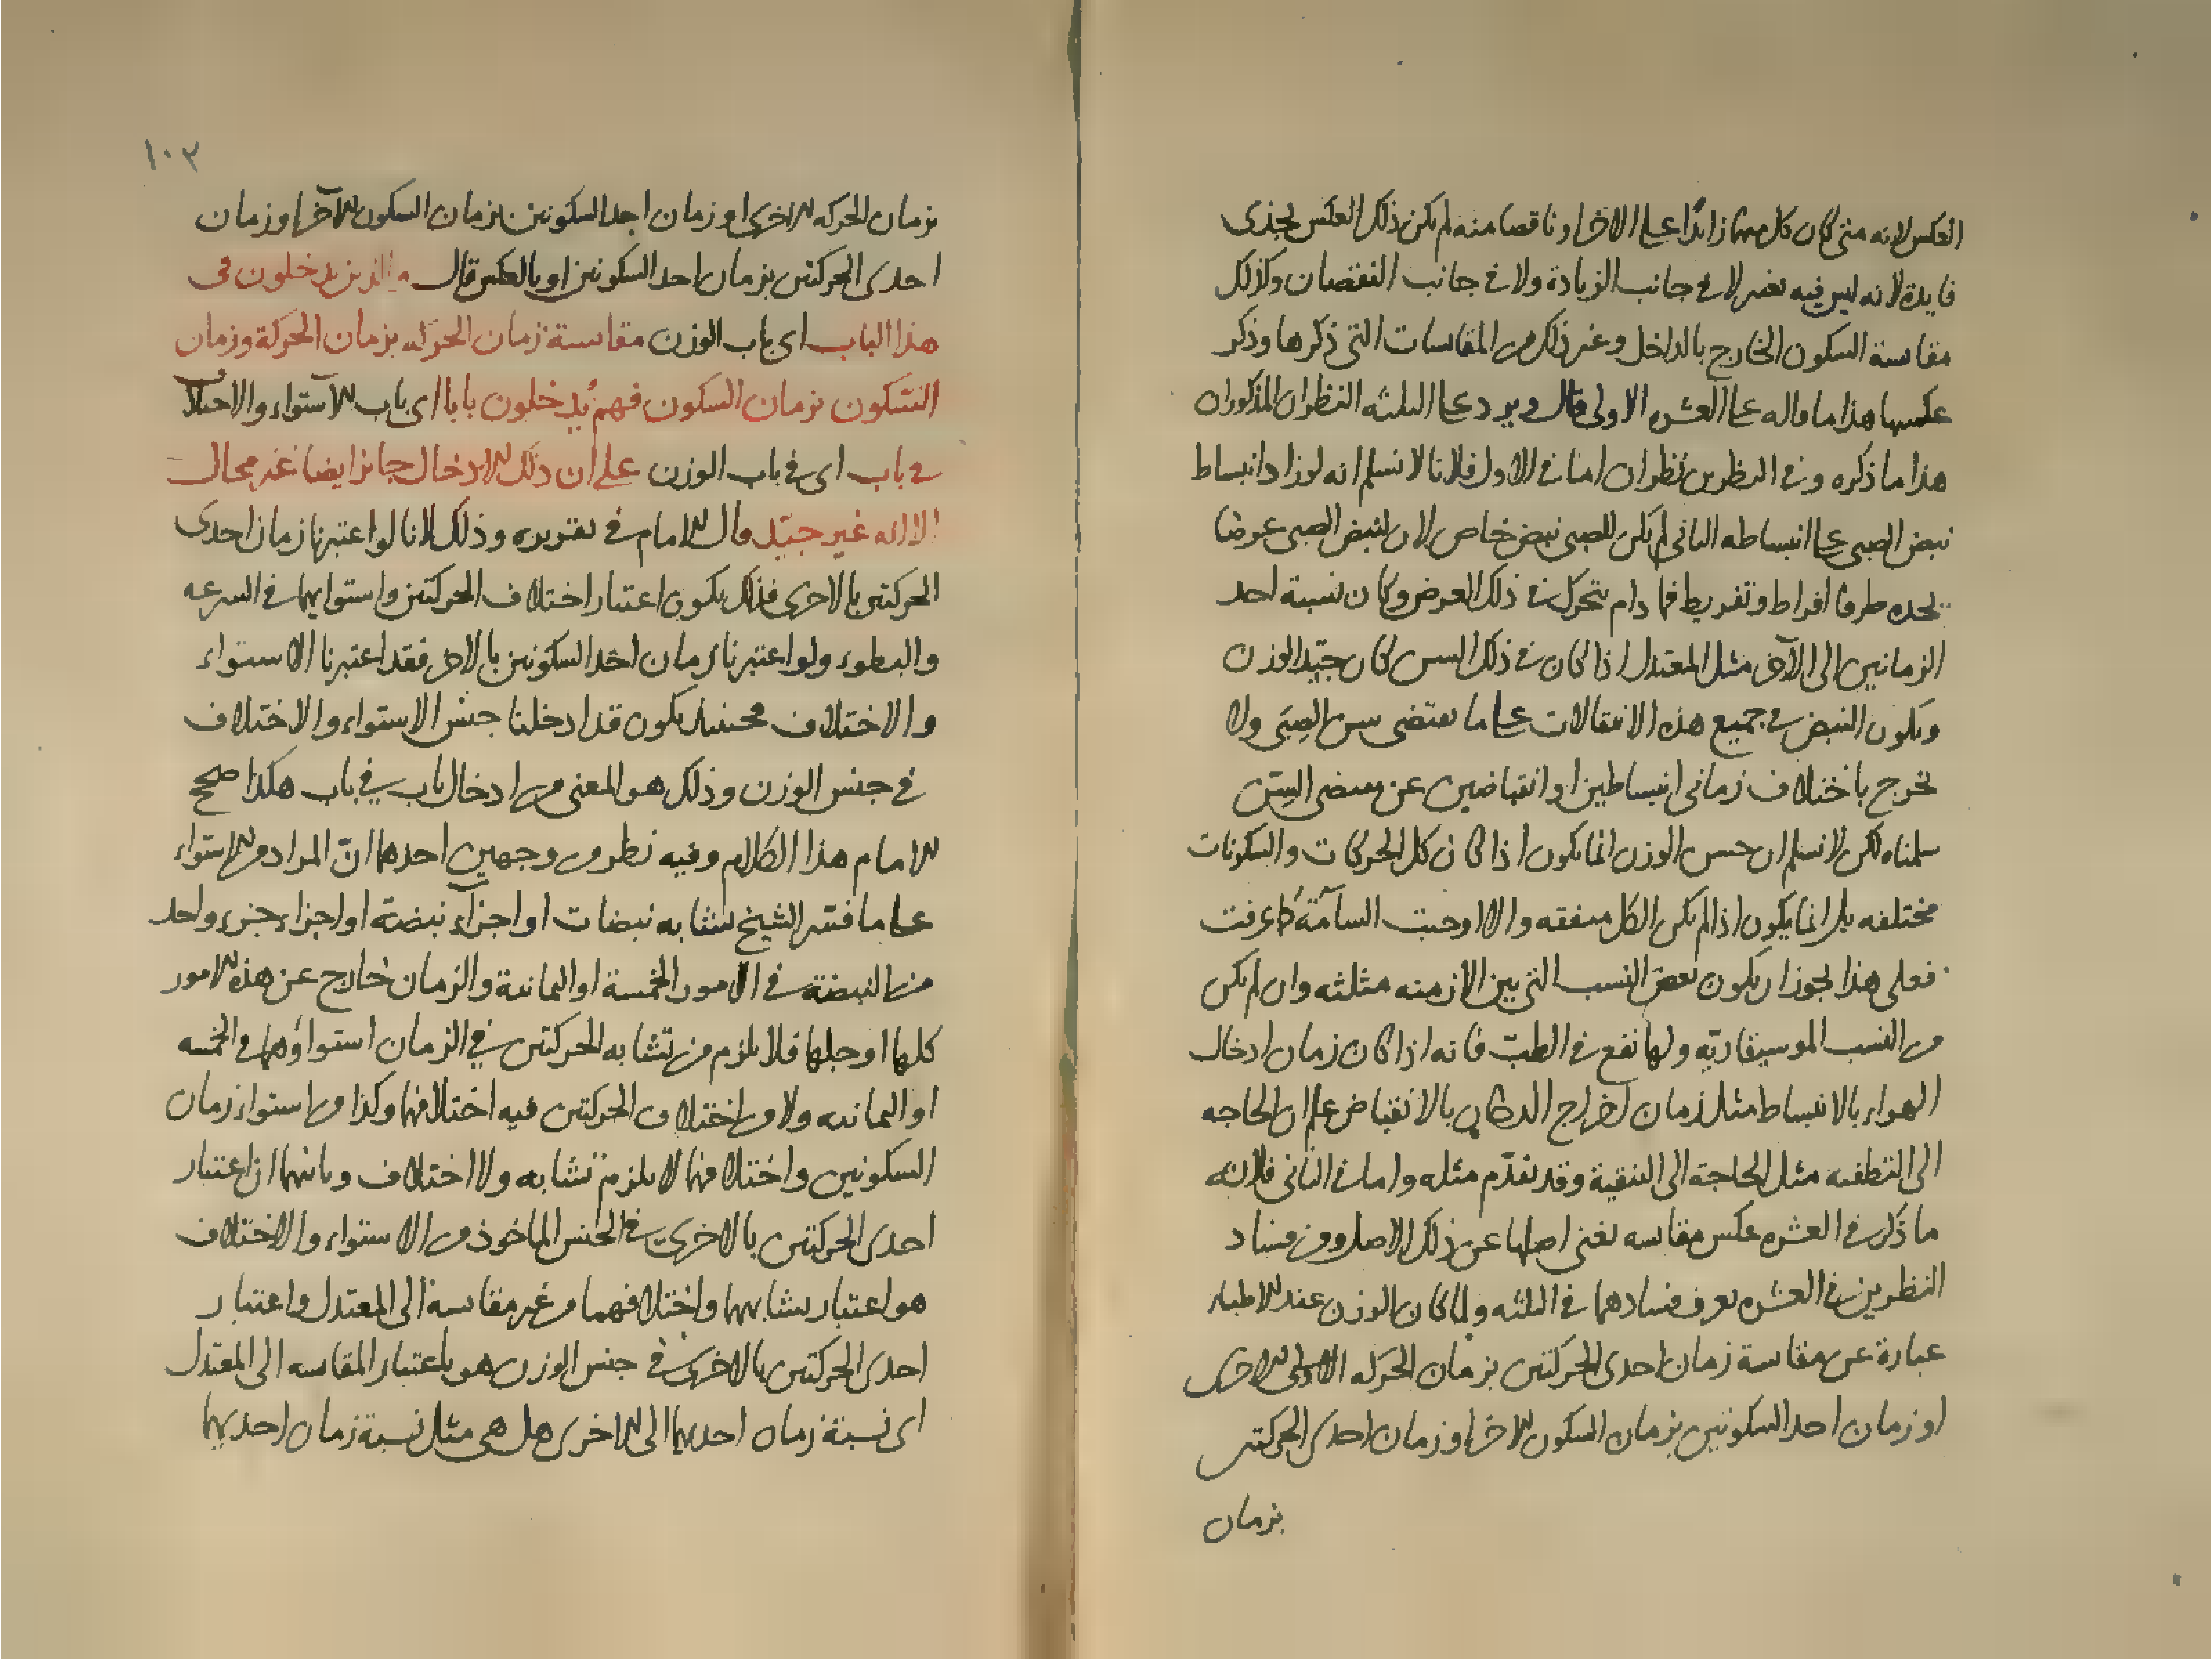 العكس لانه متى كان كل منهما زايدًا على الاخر او ناقصا منه لم يكن ذلك العكس يجدى
فايدة لانه ليس فيه نفس لا فى جانب الزيادة ولا فى جانب النقصان وكذلك
مقايسة السكون الخارج بالداخل وغير ذلك من المقايسات التى ذكرها وذكر
عكسها هذا ما قاله على العشره الاولى قال ويرد على الثلثه النظران المذكوران
هذا ما ذكره وفى النظرين نظران اما فى الاول فلانا لا نسلم انه لو زاد انبساط
نبض الصبى على انبساطه الثانى لم يكن للصبى نبض خاص لان لنبض الصبى عرضا
يحده طرفا افراط وتفريط فما دام يتحرك فى ذلك العرض وكان نسبة احد
الزمانين الى الآخر مثل المعتدل اذا كان فى ذلك السن كان جيّد الوزن
ويكون النبض فى جميع هذه الانتقالات على ما يقتضى سن الصبى ولا
يخرج باختلاف زمانى انبساطين او انقباضين عن مقتضى السن
سلمناه لكن لا نسلم ان حسن الوزن انما يكون اذا كان كل الحركات والسكونات
مختلفه بل انما يكون اذا لم يكن الكل متفقه والا اوجبت السآمة كما عرفت
فعلى هذا يجوز ان يكون بعض النسب التى بين الازمنه مثلثه وان لم يكن
من النسب الموسيقاريّه ولها نفع فى الطبّ فانه اذا كان زمان ادخال
الهواء بالانبساط مثل زمان اخراج الدخان بالانقباض علم ان الحاجه
الى التطفيه مثل الحاجة الى التنقية وقد تقدّم مثله واما فى الثانى فلانه
ما ذكر فى العشره عكس مقايسه يغنى اصلها عن ذلك الاصل ومن فساد
النظرين فى العشره يعرف فسادهما فى الثلثه ولما كان الوزن عند الاطباء
عبارة عن مقايسة زمان احدى الحركتين بزمان الحركه الاخرى
او زمان احد السكونين بزمان السكون الاخر او زمان احدى الحركتين
بزمان
١٠٣
بزمان الحركه الاخرى او زمان احد السكونين بزمان السكون الآخر او زمان
احدى الحركتين بزمان احد السكونين او بالعكس قال والذين يدخلون فى
هذا الباب اى باب الوزن مقايسة زمان الحركه بزمان الحركة وزمان
السّكون بزمان السكون فهم يُدخلون بابا اى باب الآستواء والاختلاف
فى باب اى فى باب الوزن على ان ذلك الادخال جايز ايضا غير محال
الا انه غير جيّد قال الامام فى تقريره وذلك لانا لو اعتبرنا زمان احدى
الحركتين بالاخرى فذلك يكون اعتبار اختلاف الحركتين واستوايهما فى السرعه
والبطوء ولو اعتبرنا زمان احد السكونين بالاخر فقد اعتبرنا الاستواء
والاختلاف فحينئذ يكون قد ادخلنا جنس الاستواء والاختلاف
فى جنس الوزن وذلك هو المعنى من ادخال باب فى باب هكذا صحح
الامام هذا الكلام وفيه نظر من وجهين احدهما انّ المراد من الاستواء
على ما فسّر الشيخ تشابه نبضات او اجزآء نبضة او اجزاء جزء واحد
من النبضة فى الامور الخمسة او الثمانية والزمان خارج عن هذه الامور
كلها او جلها فلا يلزم من تشابه الحركتين فى الزمان استواؤهما فى الخمسه
او الثمانيه ولا من اختلاف الحركتين فيه اختلافهما وكذا من استواء زمان
السكونين واختلافهما لا يلزم تشابه ولا اختلاف وثانيهما ان اعتبار
احدى الحركتين بالاخرى فى الجنس الماخوذ من الاستواء والاختلاف
هو اعتبار تشابههما واختلافهما من غير مقايسة الى المعتدل واعتبار
احدى الحركتين بالاخرى فى جنس الوزن هو باعتبار المقايسه الى المعتدل
اى نسبة زمان احديهما الى الاخرى هل هى مثل نسبة زمان احديهما